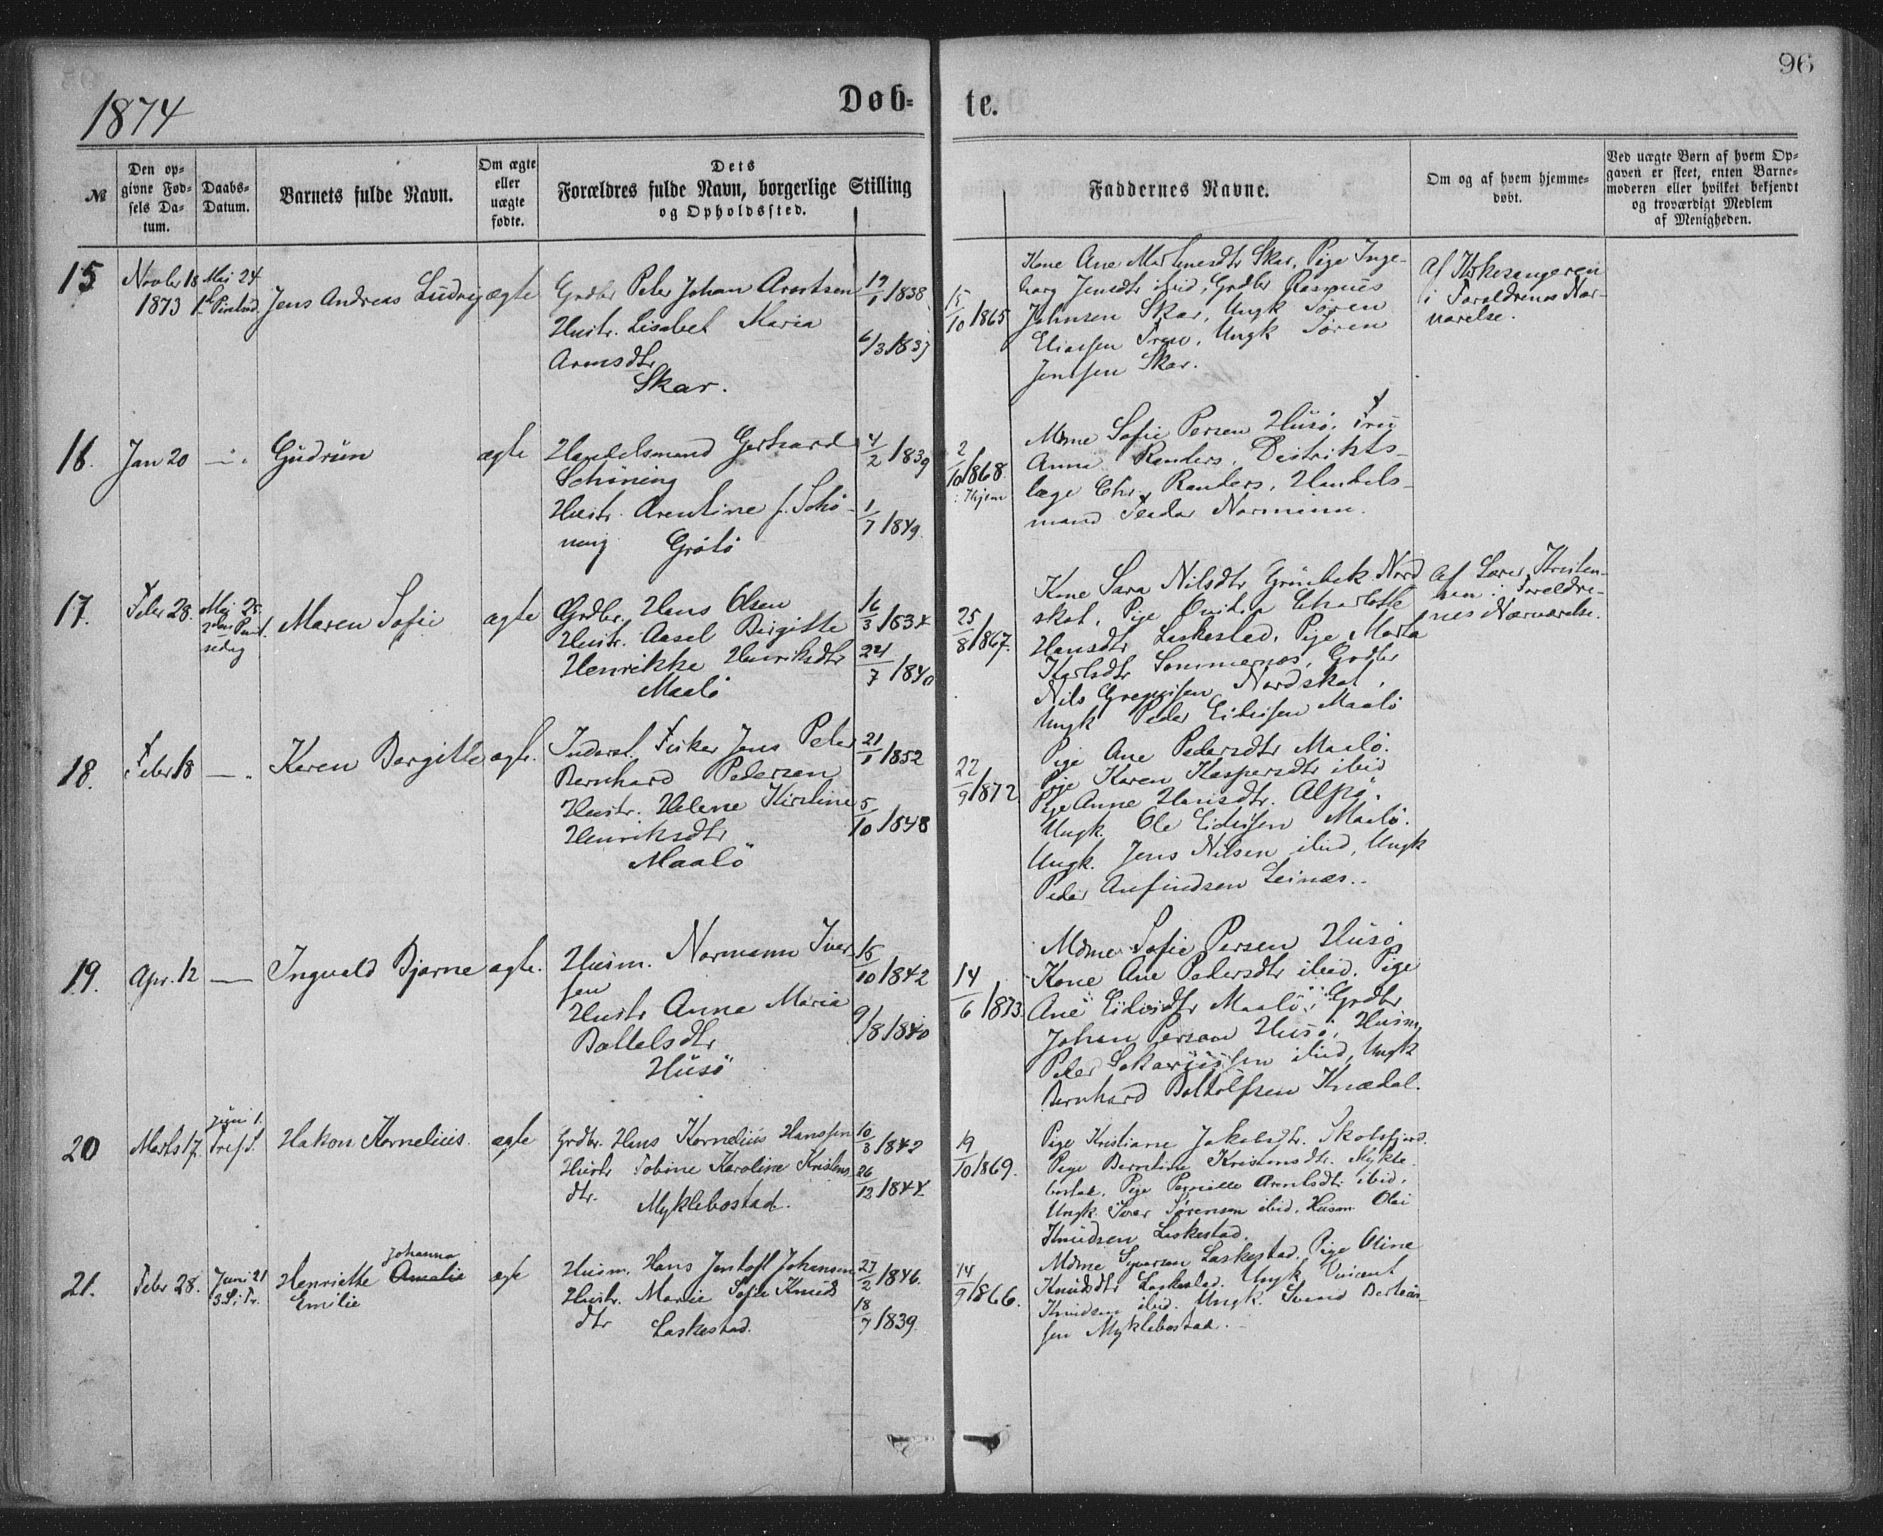 96
1874
Døb-
te.
№
Den op-
givne Fød-
sels Da-
tum.
Daabs-
Datum.
Barnets fulde Navn.
Om ægte
eller
uægte
fødte.
Dets
Forældres fulde Navn, borgerlige Stilling
og Opholdssted.
Faddernes Navne.
Om og af hvem hjemme-
døbt.
Ved uægte Børn af hvem Op-
gaven er skeet, enten Barne-
moderen eller hvilket bekjendt
og troværdigt Medlem
af Menigheden.
15
Novbr 18
1873
Mai 24
Jens Andreas Ludvig
ægte
Grdbr Peter Johan Arentsen
Hustr. Lisabet Maria
Arensdtr
Skar.
19/1 1838
6/3 1837
15/10 1865
Kone Ane Martinesdtr Skar, Pige Inge-
borg Jensdtr ibid, Grdbr Rasmus
Johnsen Skar, Ungk Søren
Eliassen, Ungk Søren
Jentsen Skar.
Af Kirkesangeren
i Forældrenes Nær-
værelse.
16.
Jan 20
Gudrun
ægte
Handelsmand Gerhard
Schöning
Hustr. Arentine f. Schö-
ning Grötö
4/2 1839
1/7 1849
2/10 1868
Mdme Sofie Persen Husö, Fru
Anna Randers, Distrikts-
læge Chr. Randers, Handels-
mand Normann.
17.
Febr 28.
Mai 25.
Maren Sofie
ægte
Grdbr. Hans Olsen
Hustr. Aasel Birgitte
Henrikke Henriksdtr
Maalö
16/3 1834
24/7 1840
25/8 1867.
Kone Sara Nilsdtr Grönbek Nord
skot, Pige Charlotte
Hansdtr Laskestad, Pige Marta
Karlsdtr Sommernes, Grdbr
Nils Nordskot,
Ungk Peder Maalö
Af Lærer Kristen-
sen i Forældre-
nes Nærværelse.
18.
Febr 18
Karen Bergitte
ægte.
Inderst, Fisker Jens Peter
Bernhard Pedersen
Hustr. Helene Kirstine
Henriksdtr
Maalö
21/1 1852
5/10 1848
22/9 1872
Pige Ane Pedersdtr Maalö.
Pige Karen Kaspersdtr ibid
Pige Anne Hansdtr.
Ungk. Ole Maalö.
Ungk. Jens Nilsen ibid, Ungk
Peder Anfindsen Leines.
19.
Apr. 12
Ingvald Bjarne
ægte.
Husm. Normann Iver
sen
Hustr Anna Maria
Bottelsdtr
Husö
16/10 1842
9/8 1840
14/6 1873
Mdme Sofie Persen Husö
Kone Ane Pedersdtr ibid, Pige
Ane Maalö, Grdbr
Johan Persen Husö, Husm
Peder ibid, Ungk
Bernhard Bottolfsen Knædal.
20
Marts 17.
Juni 1.
Trefs.
Hakon Kornelius.
ægte
Grdbr. Hans Kornelius Hanssen
Hustr Tobine Karoline Kristens
dtr.
Myklebostad.
10/3 1842
26/12 1844
19/10 1869.
Pige Kristiane Jakobsdtr. Skotsfjord.
Pige Berntine Kristensdtr. Mykle-
bostad. Pige Pernille Arentsdtr. ibid,
Ungk. Ivar Sørensen ibid, Husm Olai
Knudsen Laskestad.
21.
Febr 28.
Juni 21
3 S. e. Tr.
Johanna
Henriette Amalia
Emilie
ægte
Husm. Hans Jentoft Johansen
Hustr. Marie Sofie Knuds
dtr
Laskestad.
27/2 1846.
18/7 1839
14/9 1866.
Mdme Laskestad. Pige Oline
Knudsdtr Laskestad, Ungk Vincent
Knudsen ibid. Ungk. Svend Berteus-
sen Myklebostad.